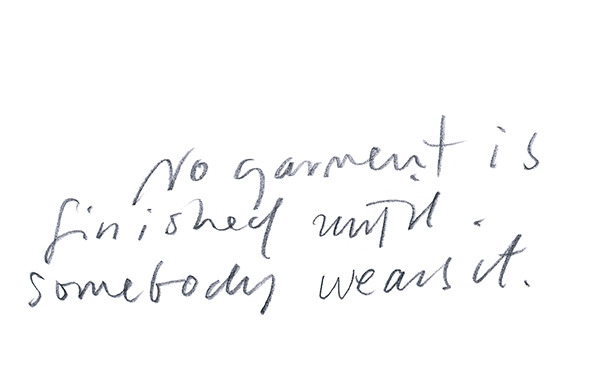 No garment is
finished until
somebody wears it.